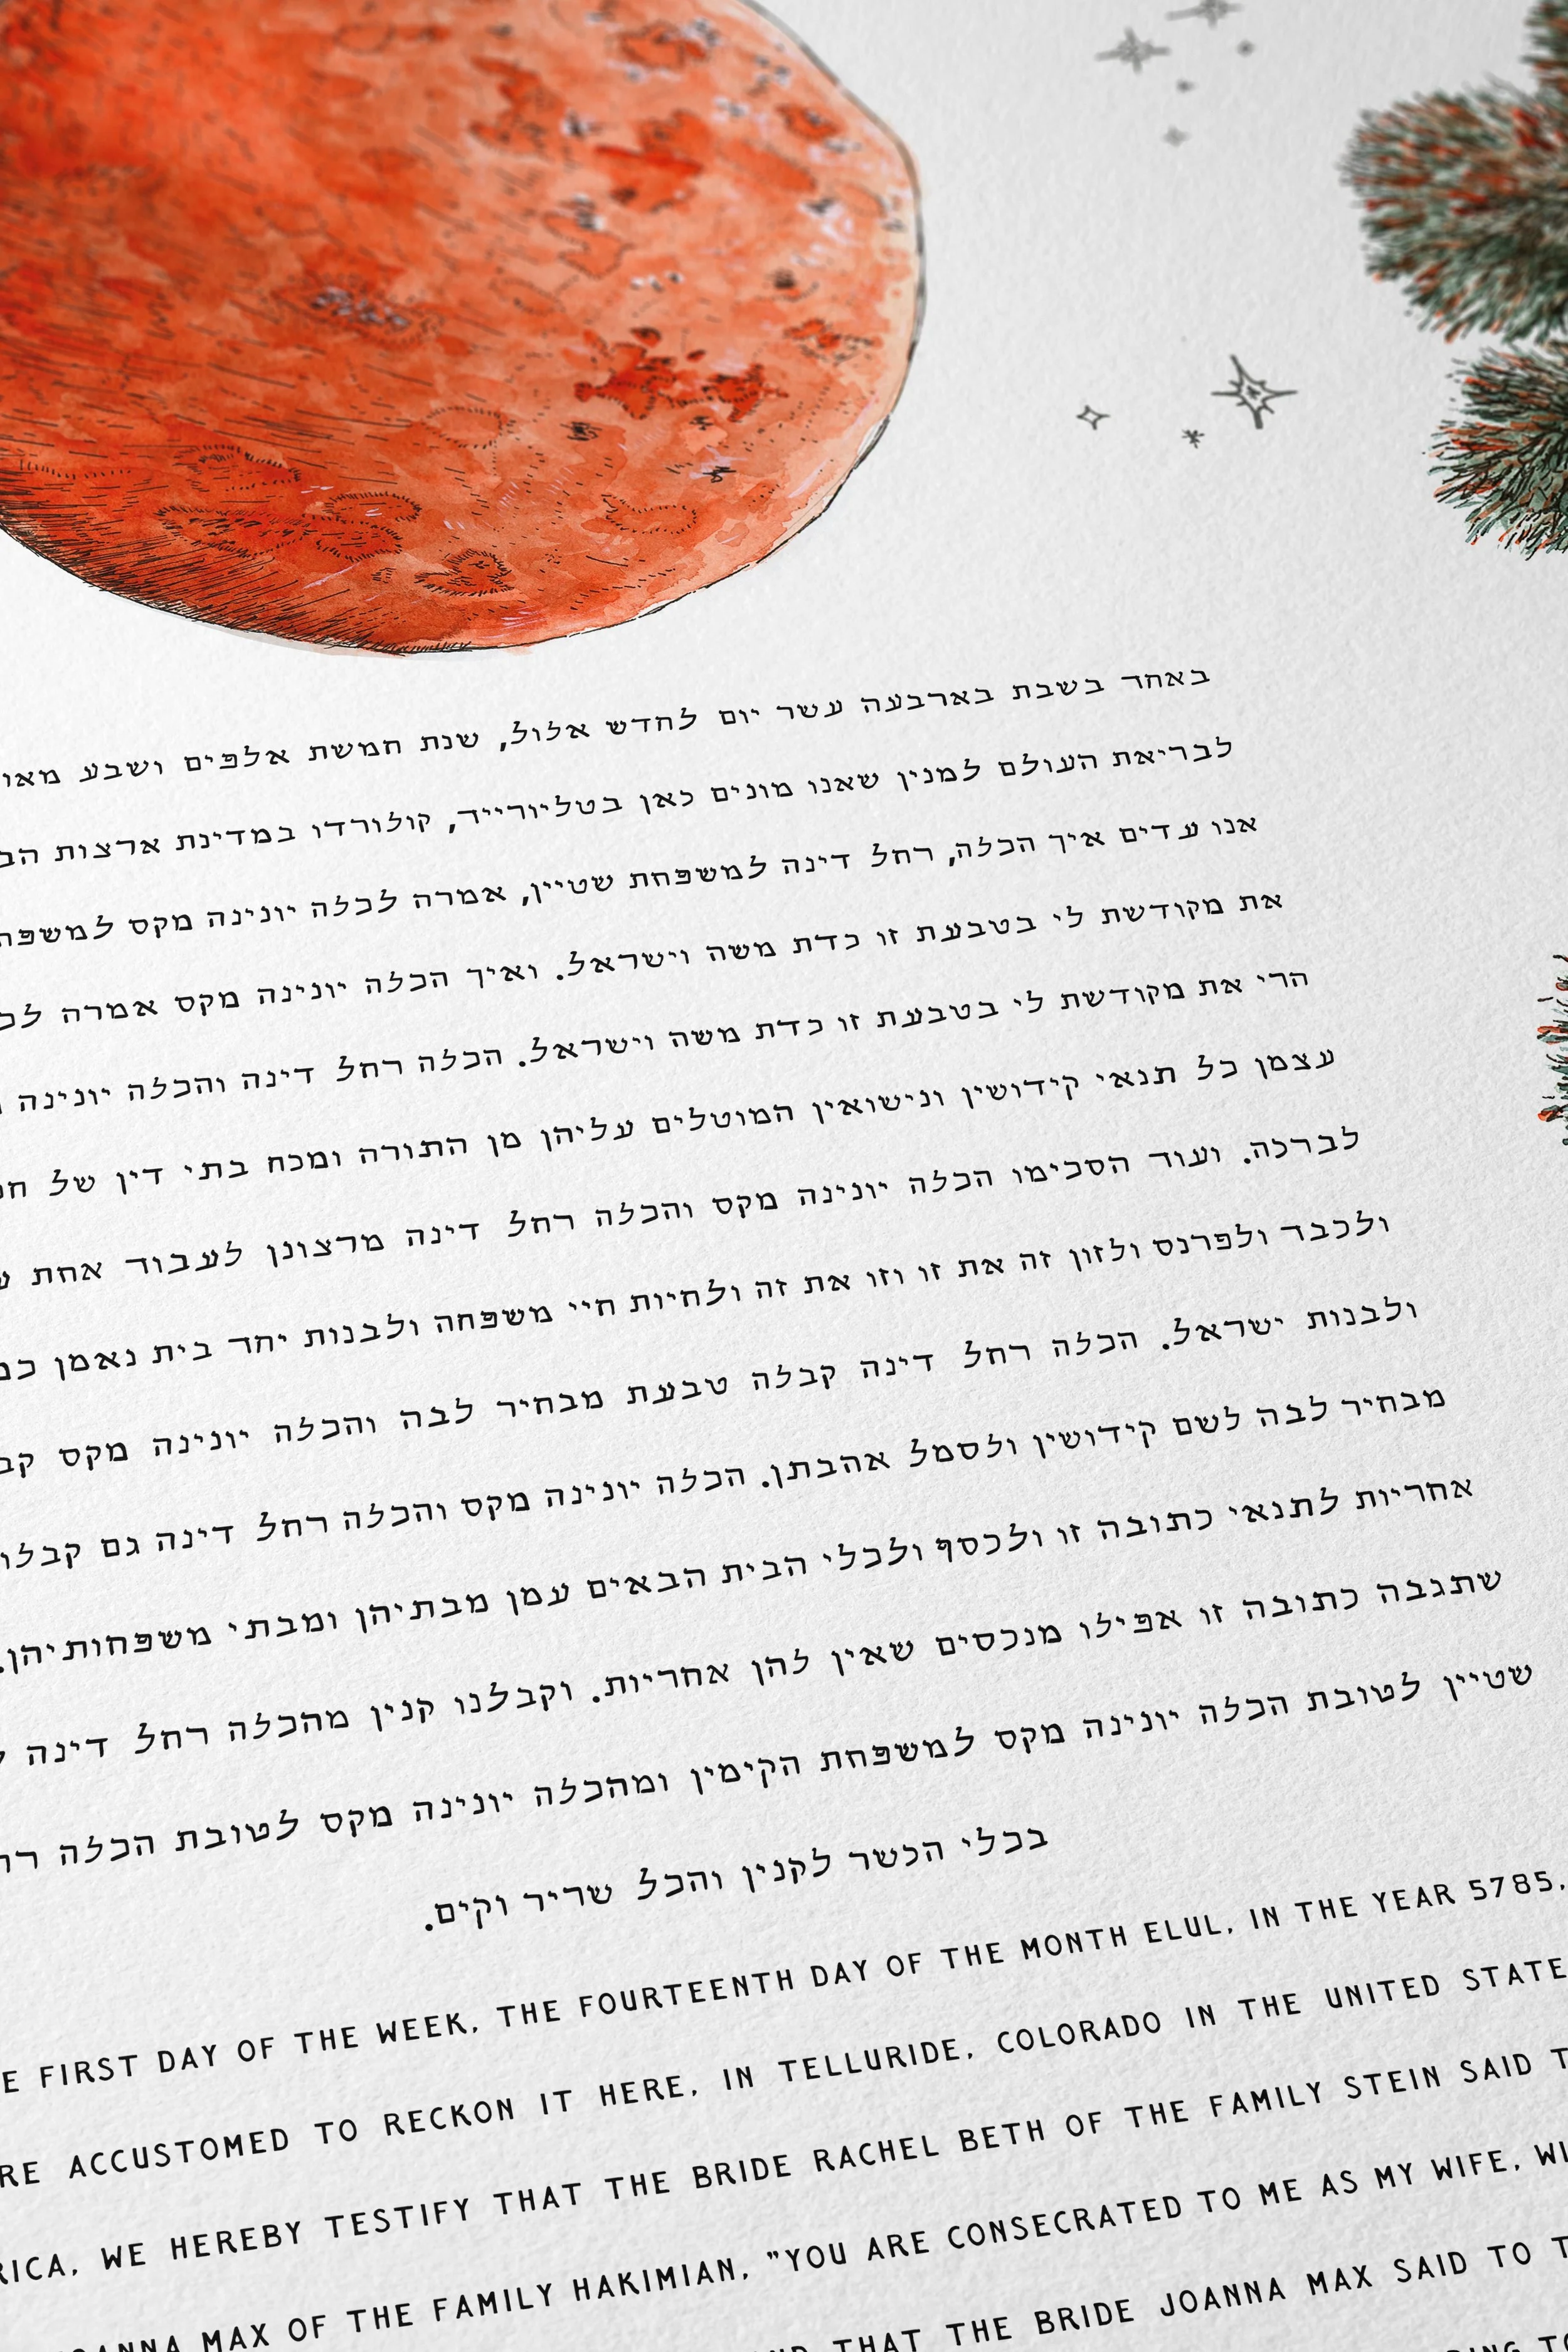 באחד בשבת בארבעה עשר יום לחדש אלול, שנת חמשת אלפים ושבע
לבריאת העולם למנין שאנו מונים כאן בטליורייד, קולורדו במדינת ארצות
אנו עדים איך הכלה, רחל דינה למשפחת שטיין, אמרה לכלה יונינה מקס
את מקודשת לי בטבעת זו כדת משה וישראל. ואיך הכלה יונינה מקס אמרה
הרי את מקודשת לי בטבעת זו כדת משה וישראל. הכלה רחל דינה והכלה יונינה
עצמן כל תנאי קידושין ונישואין המוטלים עליהן מן התורה ומכח בתי דין של
לברכה. ועוד הסכימו הכלה יונינה מקס והכלה רחל דינה מרצונן לעבוד אחת
ולכבד ולפרנס ולזון זה את זו וזו את זה ולחיות חיי משפחה ולבנות יחד בית נאמן
ולבנות ישראל. הכלה רחל דינה קבלה טבעת מבחיר לבה והכלה יונינה מקס
מבחיר לבה לשם קידושין ולסמל אהבתן. הכלה יונינה מקס והכלה רחל דינה גם קבלו
אחריות לתנאי כתובה זו ולכסף ולכלי הבית הבאים עמן מבתיהן ומבתי משפחותיהן.
שתגבה כתובה זו אפילו מנכסים שאין להן אחריות. וקבלנו קנין מהכלה רחל דינה
שטיין לטובת הכלה יונינה מקס למשפחת הקימין ומהכלה יונינה מקס לטובת הכלה
בכלי הכשר לקנין והכל שריר וקים.
FIRST DAY OF THE WEEK, THE FOURTEENTH DAY OF THE MONTH ELUL, IN THE YEAR 5785,
ACCUSTOMED TO RECKON IT HERE, IN TELLURIDE, COLORADO IN THE UNITED
WE HEREBY TESTIFY THAT THE BRIDE RACHEL BETH OF THE FAMILY STEIN SAID
MAX OF THE FAMILY HAKIMIAN, "YOU ARE CONSECRATED TO ME AS MY WIFE,
THAT THE BRIDE JOANNA MAX SAID TO